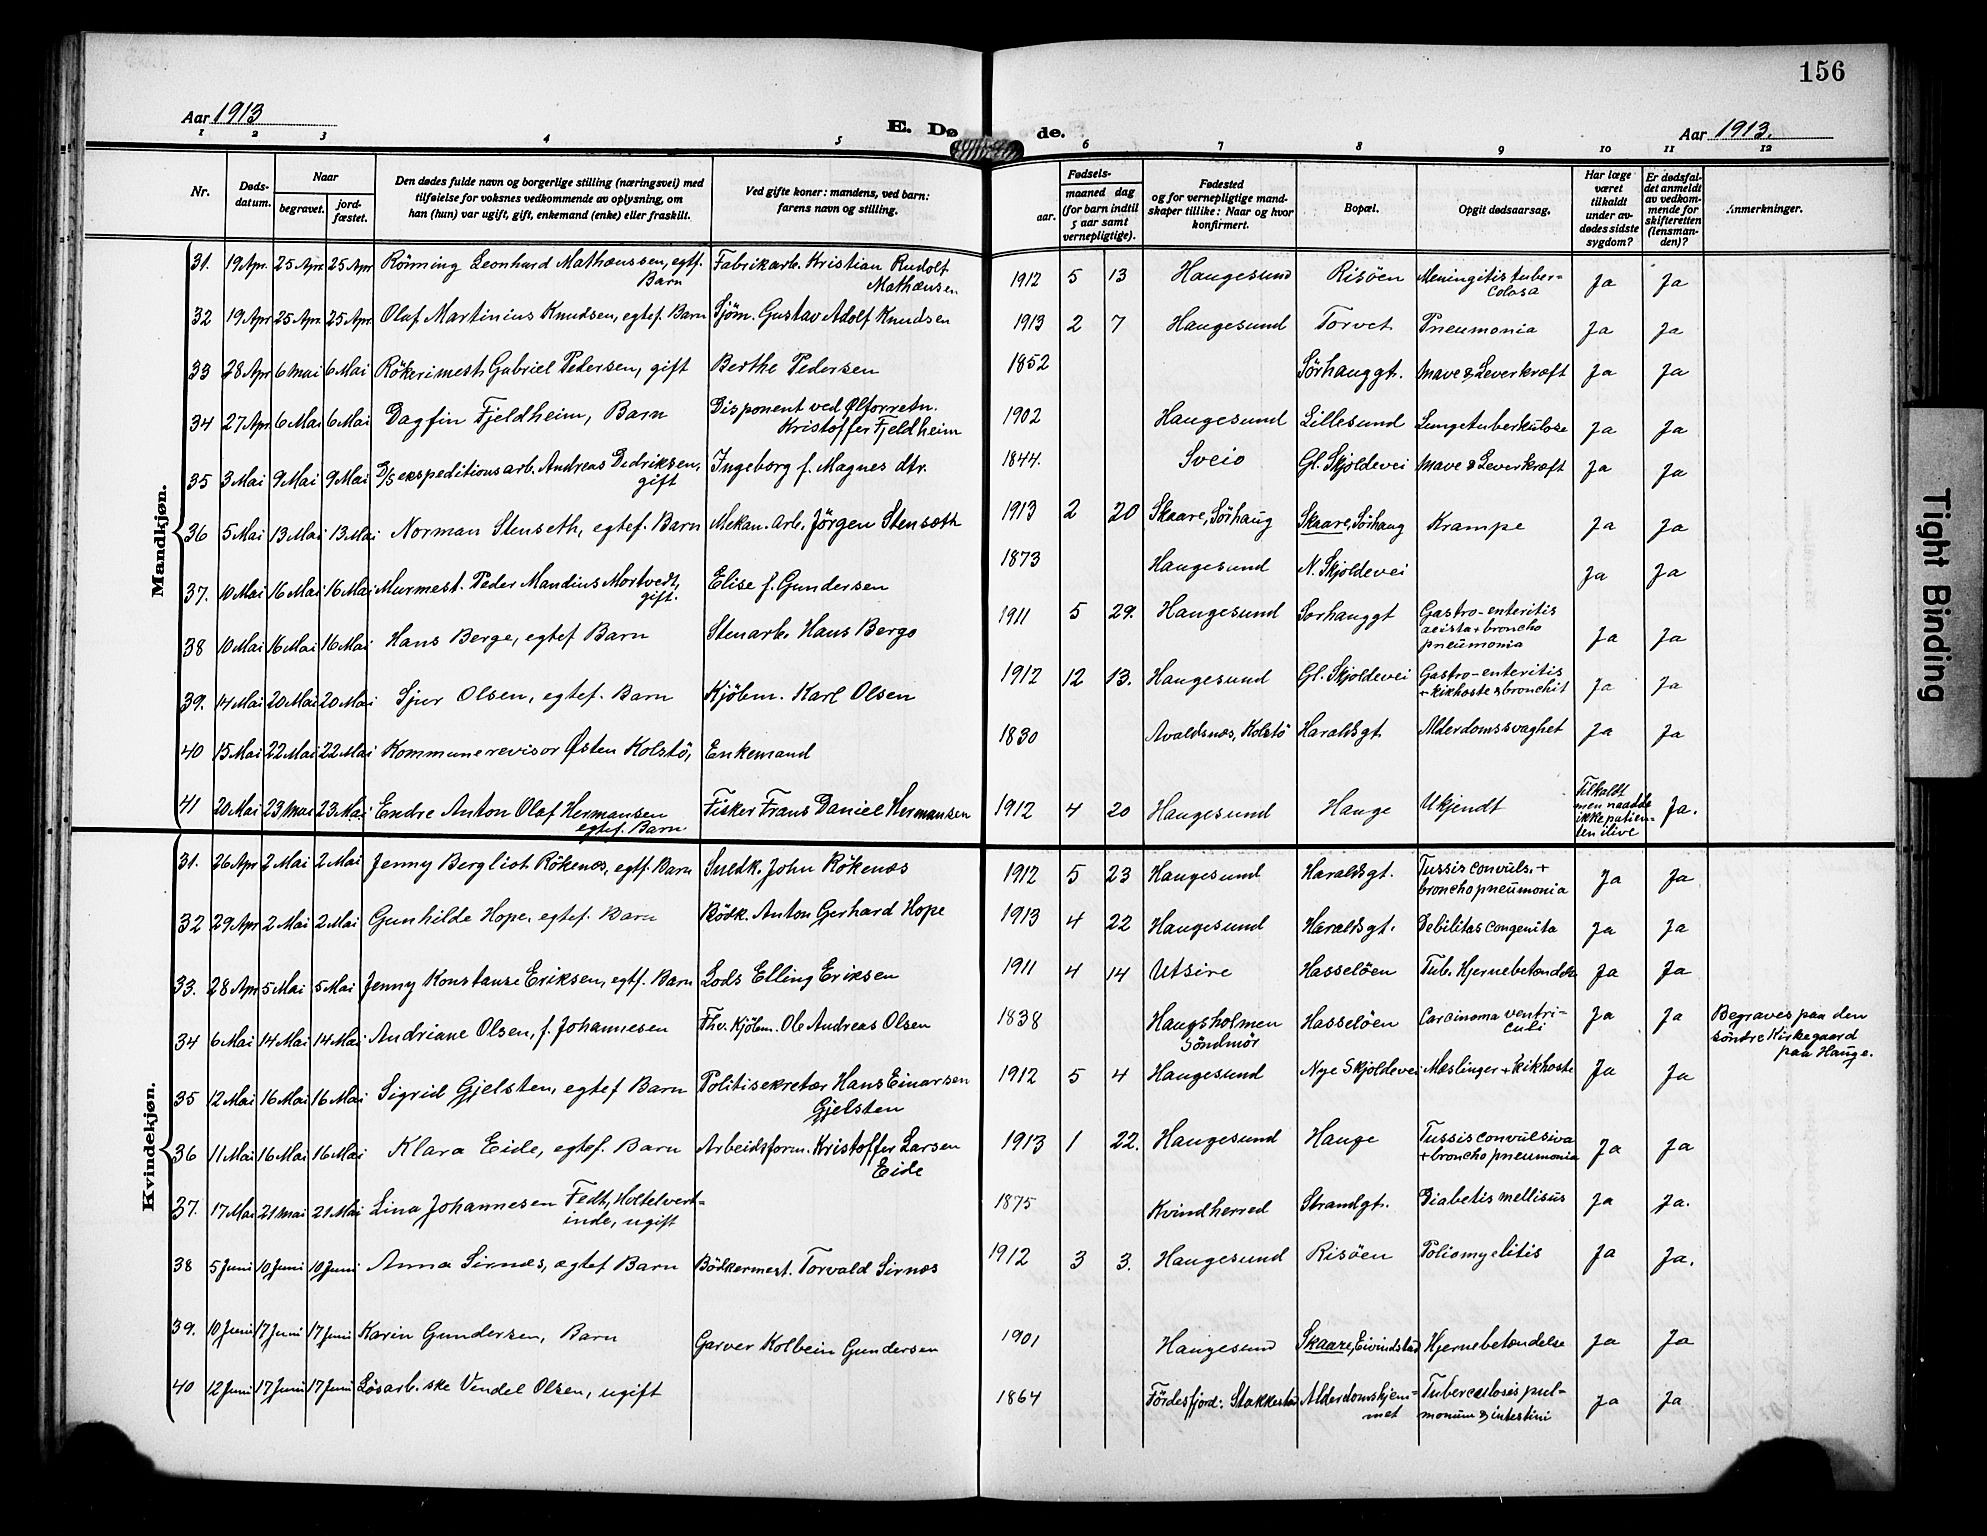 156
Aar 1913
E. Dø de.
Aar 1913.
1 2 3 4 5 6 7 8 9 10 11 12
Nr.
Døds-
datum.
Naar
begravet.
jord-
fæstet.
Den dødes fulde navn og borgerlige stilling (næringsvei) med
tilføielse for voksnes vedkommende av oplysning, om
han (hun) var ugift, gift, enkemand (enke) eller fraskilt.
Ved gifte koner: mandens, ved barn:
farens navn og stilling.
Fødsels-
aar.
maaned dag
(for barn indtil
5 aar samt
vernepligtige).
Fødested
og for vernepligtige mand-
skaper tillike: Naar og hvor
konfirmert.
Bopæl.
Opgit dødsaarsag.
Har læge
været
tilkaldt
under av-
dødes sidste
sygdom?
Er dødsfal-
det anmeldt
av vedkom-
mende for
skifteretten
(lensman-
den)?
Anmerkninger.
Mandkjøn.
31. 19 Apr. 25 Apr. 25 Apr Rönning Leonhard Mathæussen, egtf. Fabrikarb. Kristian Rudolf
Barn Mathæusen
1912 5 13 Haugesund Risöen Meningitis tuber-
colosa Ja Ja
32 19 Apr 25 Apr. 25 Apr. Olaf Martinius Knudsen, egtef. Barn Sjöm. Gustav Adolf Knudsen 1913 2 7 Haugesund Torvet Pneumonia Ja Ja
33 28 Apr 6 Mai 6 Mai Rökerimestr. Gabriel Pedersen, gift Berthe Pedersen 1852 Sörhauggt. Mave & Leverkræft Ja Ja
34 27 Apr 6 Mai 6 Mai Dagfin Fjeldheim, Barn Disponent ved Ölforretn.
Kristoffer Fjeldheim 1902 Haugesund Lillesund Lungetuberkulose Ja Ja
35 3 Mai 9 Mai 9 Mai D/S ekspeditionsarb. Andreas Dedriksen,
gift Ingeborg f. Magnes dtr. 1844. Sveio Gl. Skjoldevei Mave & Leverkræft Ja Ja
36 5 Mai 13 Mai 13 Mai Norman Stenseth, egtef. Barn Mekan. arb. Jörgen Stensæth 1913 2 20 Skaare, Sörhaug Skaare, Sörhaug Krampe Ja Ja
37. 10 Mai 16 Mai 16 Mai Murmest. Peder Mandius Mortvedt,
gift. Elise f. Gundersen 1873 Haugesund N. Skjoldevei Ja Ja
38 10 Mai 16 Mai 16 Mai Hans Berge, egtef Barn Stenarb. Hans Berge 1911 5 29. Haugesund Sorhauggt Gastro-enteritis
acista + broncho
pneumonia Ja Ja
39. 14 Mai 20 Mai 20 Mai Sjur Olsen, egtef. Barn Kjöbm. Karl Olsen 1912 12 13. Haugesund Gl. Skjoldevei Gastro-enteritis
+ kikhoste & bronchit Ja Ja
40 15 Mai 22 Mai 22 Mai Kommunerevisor Østen Kolstö, Enkemand 1830 Avaldsnæs, Kolstö Haraldsgt Alderdomssvaghet Ja Ja
41 20 Mai 23 Mai 23 Mai Endre Anton Olaf Hermansen
egtef. Barn Fisker Frans Daniel Hermansen 1912 4 20 Haugesund Hauge Ukjendt Tilkaldt
men naadde
ikke patien-
ten ilive Ja.
Kvindekjøn.
31. 26 Apr 2 Mai 2 Mai Jenny Bergliot Rökenæs, egtf. Barn Snedk. John Rökenæs 1912 5 23 Haugesund Haraldsgt. Tussis convuls. +
bronchopneumonia Ja Ja
32 29 Apr 2 Mai 2 Mai Gunhilde Hope, egtef. Barn Bödk. Anton Gerhard Hope 1913 4 22 Haugesund Haraldsgt. Debilitas congenita Ja Ja
33. 28 Apr 5 Mai 5 Mai Jenny Konstanse Eriksen, egtf. Barn Lods Elling Eriksen 1911 4 14 Utsire Hasselöen Tub. Hjernebetændelse Ja Ja
34 6 Mai 14 Mai 14 Mai Andriane Olsen, f. Johannesen Fhv. Kjöbm. Ole Andreas Olsen 1838 Haugsholmen
Söndmör Hasselöen Carcinoma ventri-
culi Ja Ja Begraves paa den
söndre Kirkegaard
paa Hauge.
35 12 Mai 16 Mai 16 Mai Sigrid Gjelsten, egtef Barn Politisekretær Hans Einarsen
Gjelsten 1912 5 4 Haugesund Nye Skjoldevei Mæslinger + kikhoste Ja Ja
36 11 Mai 16 Mai 16 Mai Klara Eide, egtef. Barn Arbeidsform. Kristoffer Larsen
Eide 1913 1 22. Haugesund Hauge Tussis convulsiva
+ bronchopneumonia Ja Ja
37. 17 Mai 21 Mai 21 Mai Lina Johannesen Fedt, Hotelvert-
inde, ugift 1875 Kvindherred Strandgt. Diabetis mellisus Ja Ja.
38 5 Juni 10 Juni 10 Juni Anna Sirnæs, ægtef Barn Bödkermest. Torvald Sirnæs 1912 3 3. Haugesund Risöen Poliomyelitis Ja Ja.
39. 10 Juni 17 Juni 17 Juni Karin Gundersen, Barn Garver Kolbein Gundersen 1901 Haugesund Skaare, Eivindstad Hjernebetændelse Ja Ja
40 12 Juni 17 Juni 17 Juni Løsarb. ske Vendel Olsen, ugift 1864 Fördesfjord: Stakkestad Alderdomshjem-
met Tuberculosis pul-
monum & intestini Ja Ja
Tight Binding